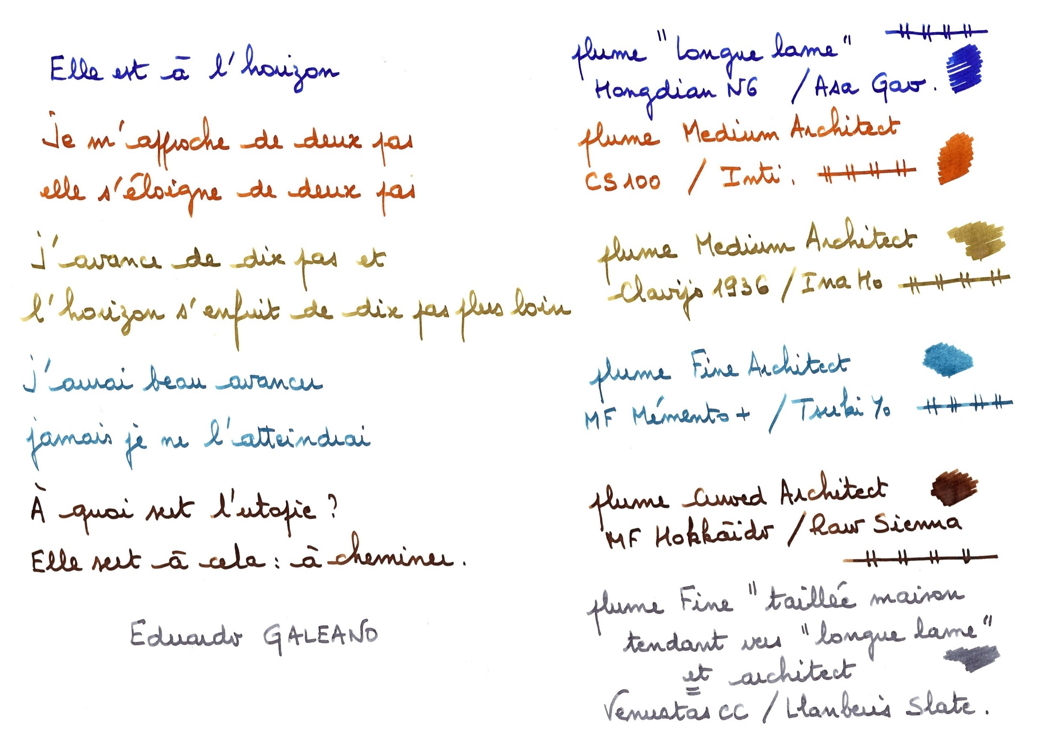 Elle est à l'horizon
Je m'approche de deux pas
elle s'éloigne de deux pas
J'avance de dix pas et
l'horizon s'enfuit de dix pas plus loin
J'aurai beau avancer
jamais je ne l'atteindrai
À quoi sert l'utopie ?
Elle sert à cela : à cheminer.
Eduardo GALEANO
plume "longue lame"
Hongdian N6 / Asa Gao.
plume Medium Architect
CS 100 / Inti.
plume Medium Architect
Clavijo 1936 / Ina Ho
plume Fine Architect
MF Mémento + / Tsuki Yo
plume Curved Architect
MF Hokkaïdo / Raw Sienna
plume Fine "taillée maison
tendant vers "longue lame"
et architect
Venustas CC / Llanberis Slate.